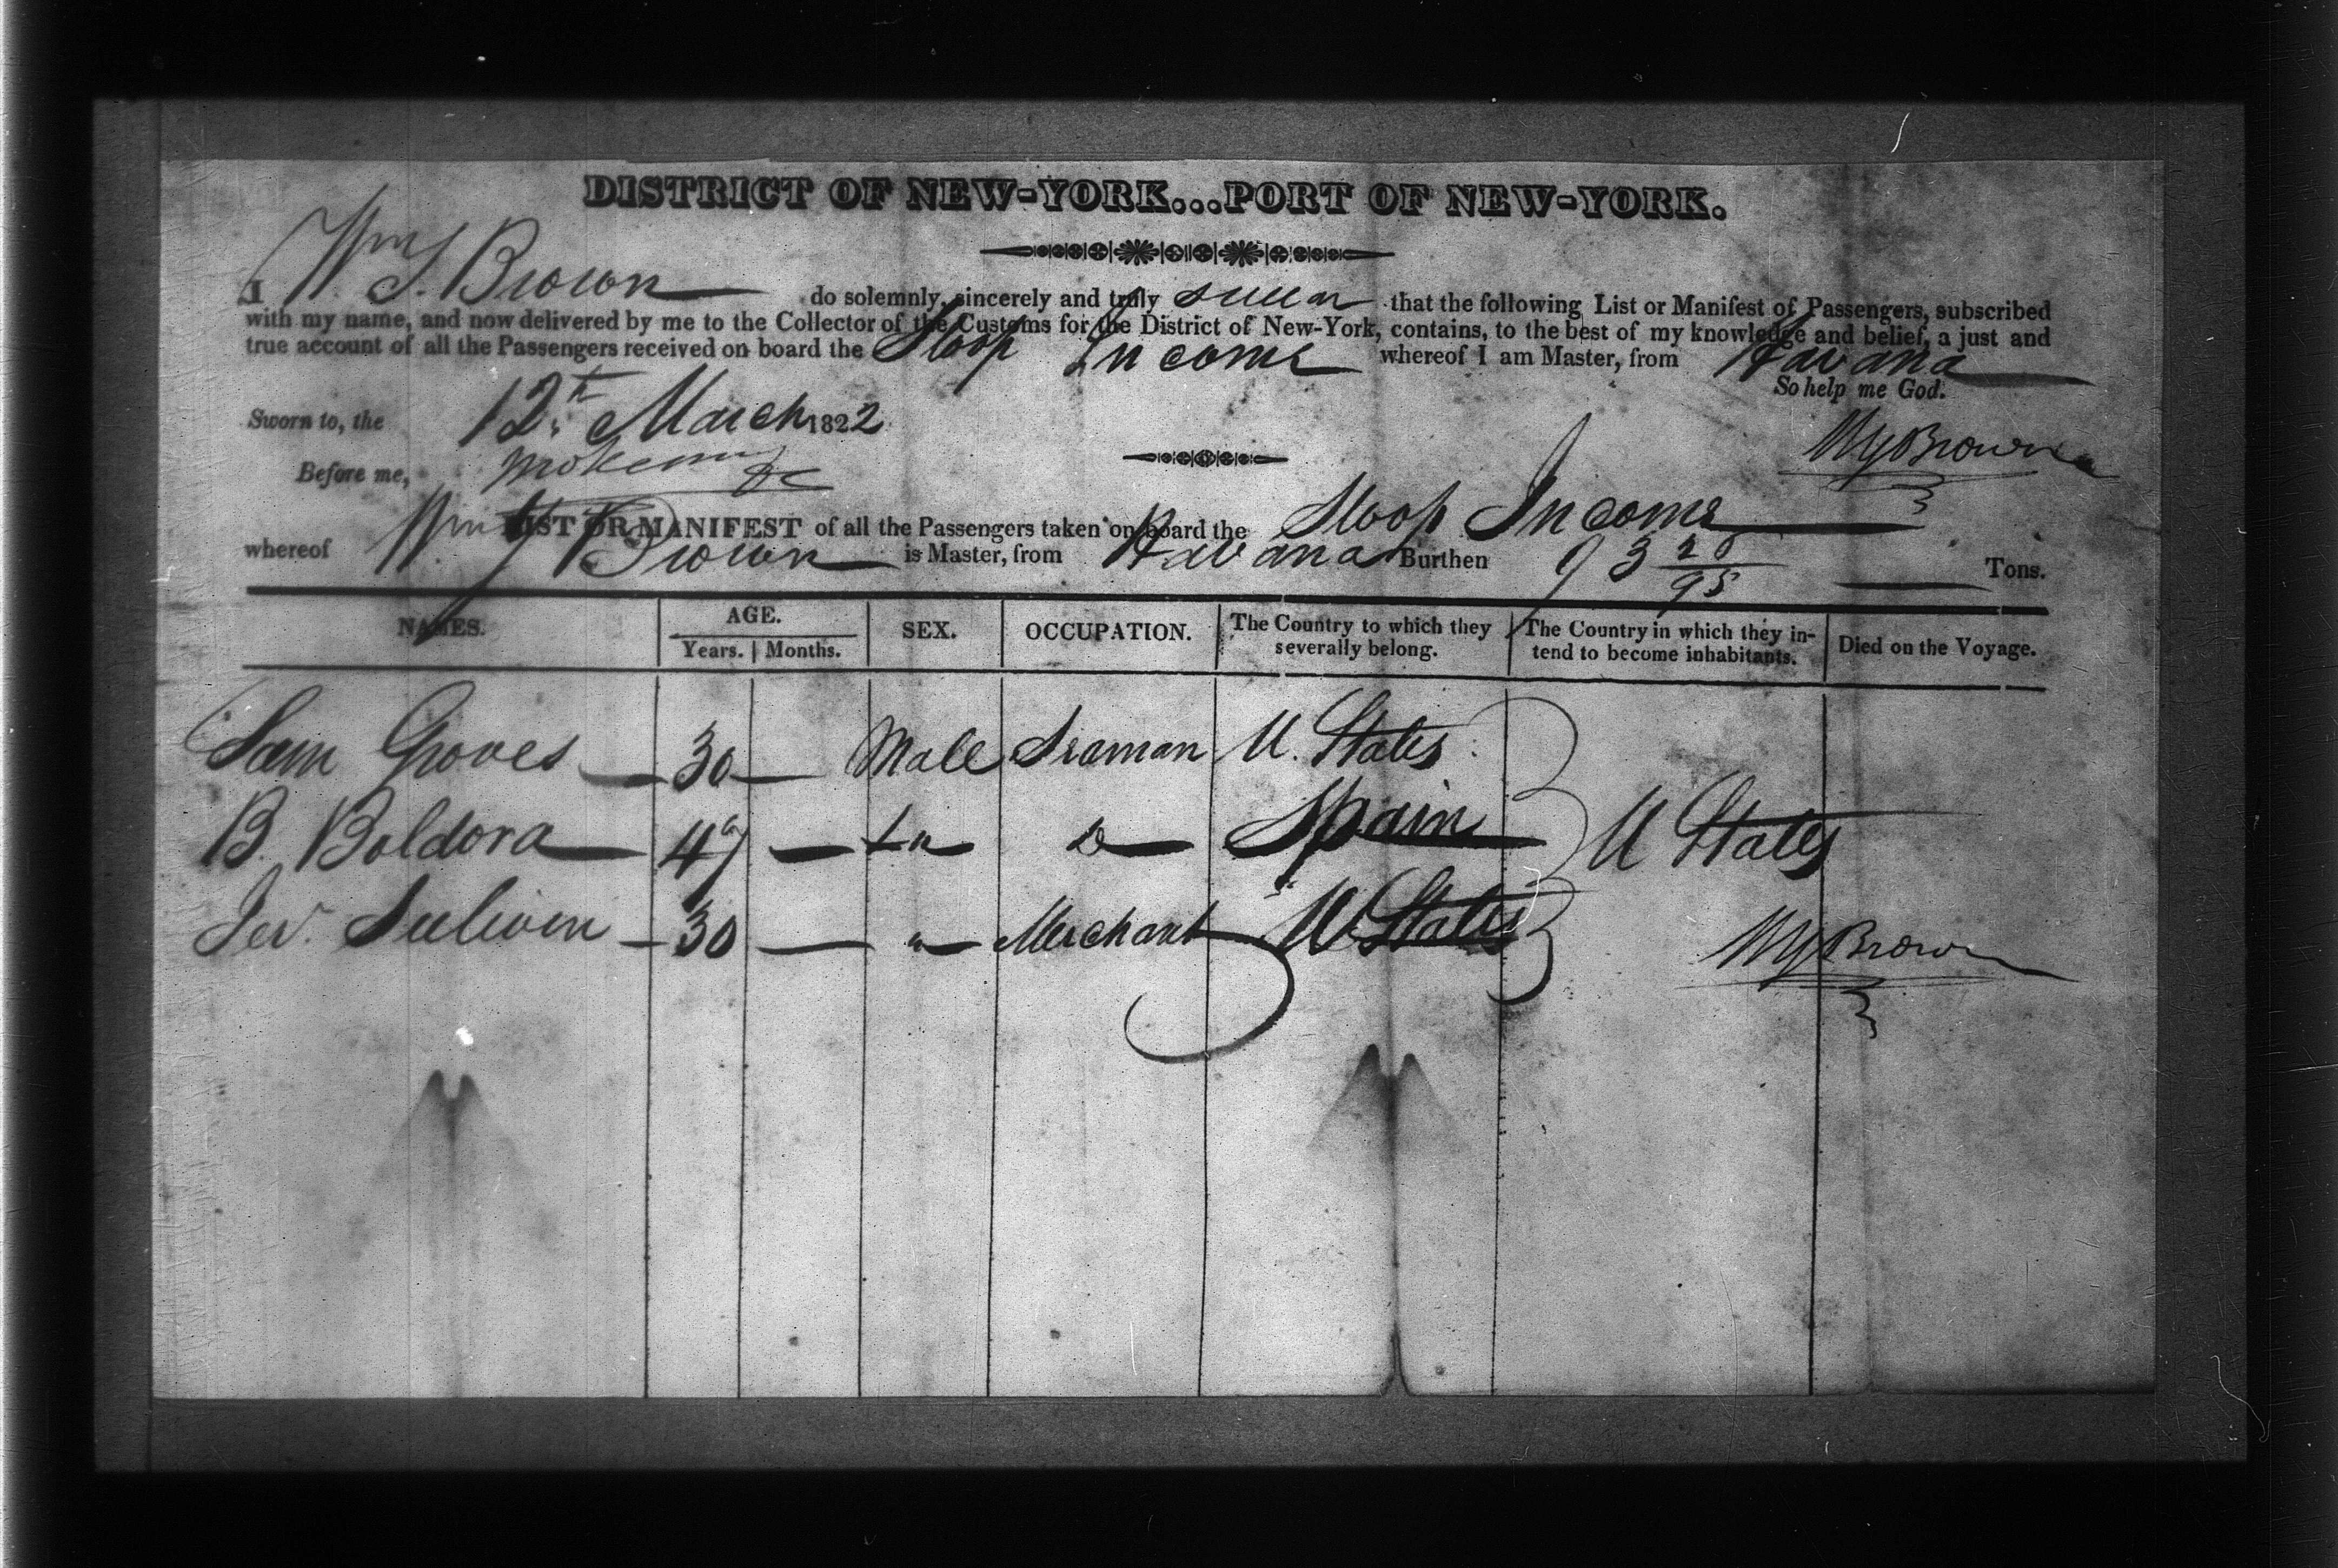 DISTRICT OF NEW-YORK...PORT OF NEW-YORK.
I Wm J. Brown do solemnly, sincerely and truly swear that the following List or Manifest of Passengers, subscribed
with my name, and now delivered by me to the Collector of the Customs for the District of New-York, contains, to the best of my knowledge and belief, a just and
true account of all the Passengers received on board the Sloop Income whereof I am Master, from Havana
So help me God.
Sworn to, the 12th March 1822
Wm J Brown
Before me,
LIST OR MANIFEST of all the Passengers taken on board the Sloop Income
whereof Wm J Brown is Master, from Havana Burthen 93 28/95 Tons.
NAMES. AGE. SEX. OCCUPATION. The Country to which they severally belong. The Country in which they intend to become inhabitants. Died on the Voyage.
Years. Months.
Sam Groves 30 Male Seaman U. States
B. Boldora 47 Do Spain U States
Sulivan 30 " Merchant U States
Wm J Brown